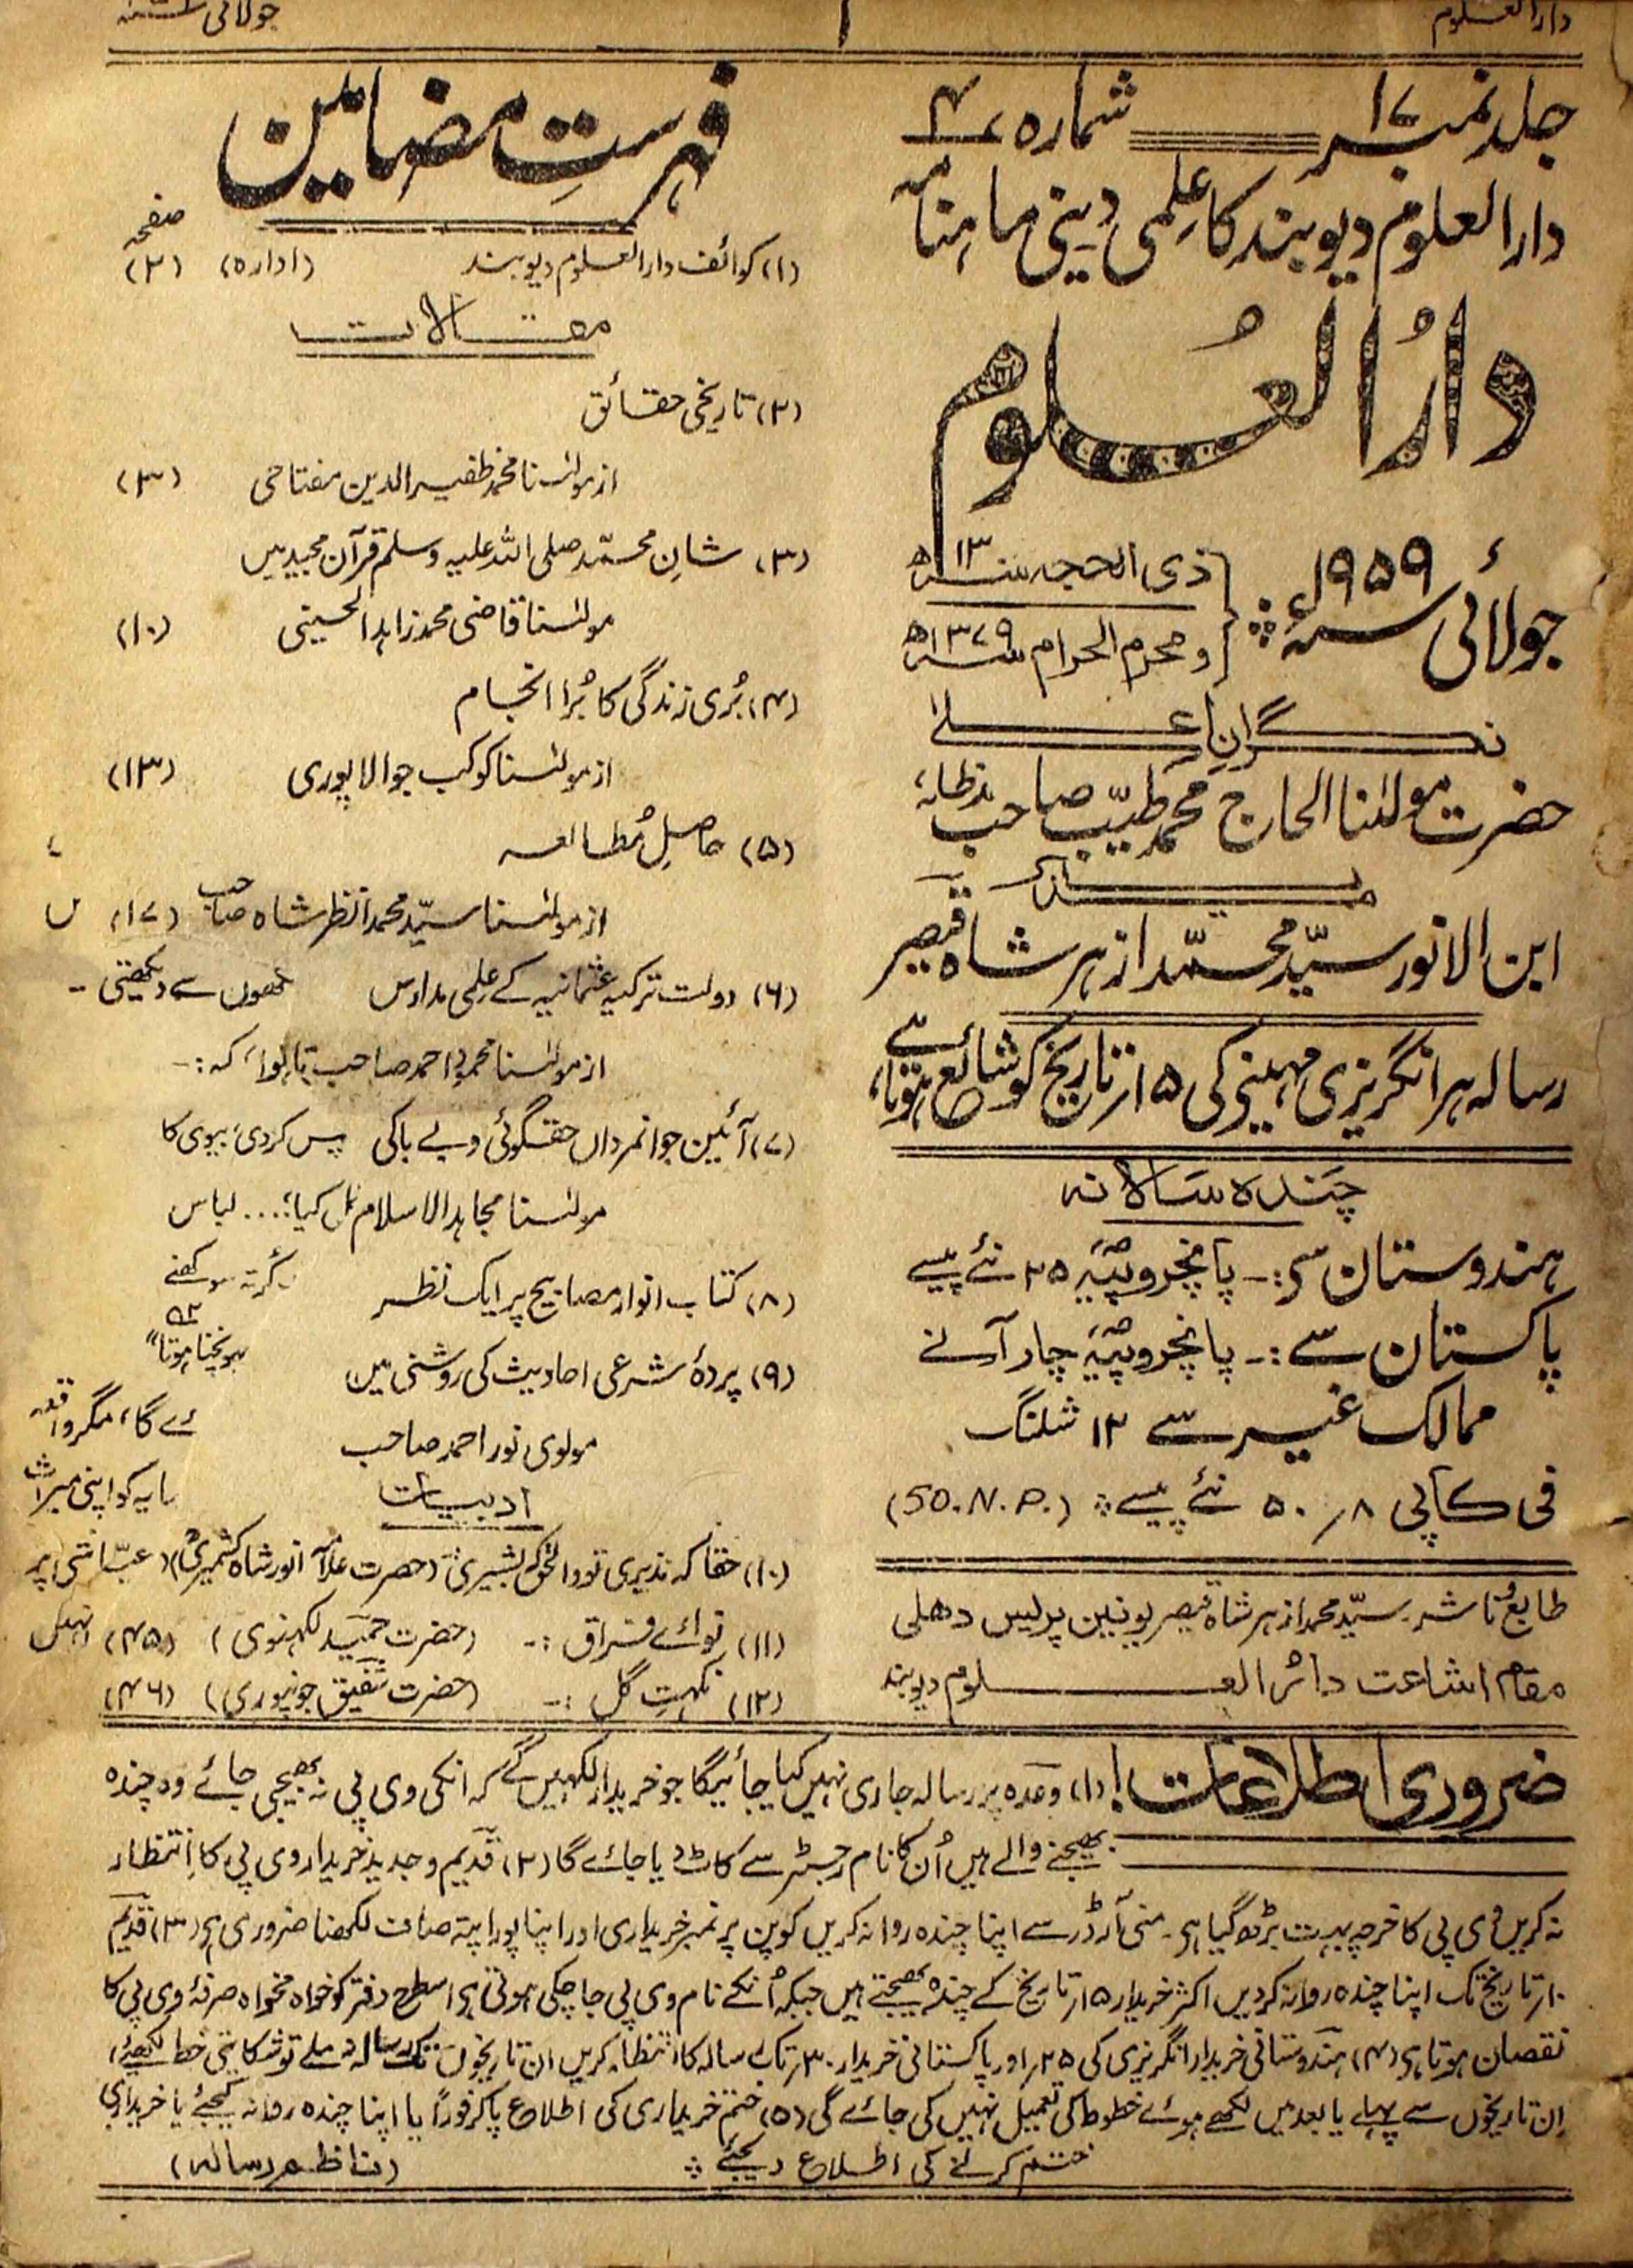 دارالعلوم
۱
جولائی
جلد نمبر ۱۷ شمارہ ۴
دارالعلوم دیوبند کا علمی دینی ماہنامہ
دارُالعُلوم
جولائی ۱۹۵۹ء
ذی الحجہ ۱۳
و محرم الحرام ۱۳۷۹ھ
نگرانِ اعلیٰ
حضرت مولٰنا الحاج محمد طیّب صاحب مدظلہٗ
مدیر
ابن الانور سیّد محمّد ازہر شاہ قیصر
رسالہ ہر انگریزی مہینے کی ۱۵ تاریخ کو شائع ہوتا ہے
چندہ سالانہ
ہندوستان سے:۔ پانچروپیہ ۲۵ نئے پیسے
پاکستان سے:۔ پانچروپیہ چار آنے
ممالک غیر سے ۱۲ شلنگ
فی کاپی ۸؍ ۵۰ نئے پیسے (50.N.P.)
طابع ناشر۔ سیّد محمد ازہر شاہ قیصر یونین پریس دہلی
مقام اشاعت دائرالعلوم دیوبند
فہرستِ مضامین
صفحہ
(۱) کوائف دارالعلوم دیوبند (ادارہ) (۲)
مقالات
(۲) تاریخی حقائق
از مولٰنا محمد ظفیر الدین مفتاحی (۳)
(۳) شانِ محمّد صلی اللہ علیہ وسلم قرآن مجید میں
مولٰنا قاضی محمد زاہد الحسینی (۱۰)
(۴) بُری زندگی کا بُرا انجام
از مولٰنا کوکب جوالاپوری (۱۳)
(۵) حاصلِ مُطالعہ
از مولٰنا سیّد محمد انظر شاہ صاحب (۱۷) ں
(۶) دولت ترکیہ عثمانیہ کے علمی مدارس کھوں سے دیکھتی
از مولٰنا محمد احمد صاحب کہ:۔
(۷) آئین جوانمرداں حقگوئی و بے باکی پس کردی، بیوی کا
مولٰنا مجاہد الاسلام کیا؛.... لباس
(۸) کتاب انوار مصابیح پر ایک نظر کُرتہ سوکھنے
۵۲
پہونچنا ہوتا"
(۹) پردۂ شرعی احادیث کی روشنی میں
ئے گا، مگر واقعہ
مولوی نور احمد صاحب
ادبیات
سایہ کو اپنی میراث
(۱۰) حقا کہ نذیری تو والحق کہ بشیری (حضرت علامہ انور شاہ کشمیریؒ)
(۱۱) نوائے فراق:۔ (حضرت حمید لکھنوی) (۴۵) نہیں
(۱۲) نکہتِ گل:۔ (حضرت شفیق جونپوری) (۴۶)
ضروری اطلاعات! (۱) وعدہ پر رسالہ جاری نہیں کیا جائیگا جو خریدار لکھیں گے کہ انکی وی پی نہ بھیجی جائے وہ چندہ
بھیجنے والے ہیں اُن کا نام رجسٹر سے کاٹ دیا جائے گا (۲) قدیم و جدید خریدار وی پی کا اِنتظار
نہ کریں وی پی کا خرچہ بہت بڑھ گیا ہی۔ منی آرڈر سے اپنا چندہ روانہ کریں کوپن پر نمبر خریداری اور اپنا پورا پتہ صاف لکھنا ضروری ہی (۳) قدیم
۱۰؍ تاریخ تک اپنا چندہ روانہ کردیں اکثر خریدار ۱۵؍ تاریخ کے چندہ بھیجتے ہیں جبکہ اُنکے نام وی پی جا چکی ہوتی ہی اسطرح دفتر کو خواہ مخواہ صرفۂ وی پی کا
نقصان ہوتا ہی (۴) ہندوستانی خریدار انگریزی کی ۲۵؍ اور پاکستانی خریدار ۳۰؍ تک رسالہ کا انتظار کریں ان تاریخوں تک رسالہ نہ ملے تو شکایتی خط لکھئے،
اِن تاریخوں سے پہلے یا بعد میں لکھے ہوئے خطوط کی تعمیل نہیں کی جائے گی (۵) ختم خریداری کی اطلاع پا کر فوراً یا اپنا چندہ روانہ کیجئے یا خریداری
ختم کرنے کی اطلاع دیجئے (ناظم رسالہ)